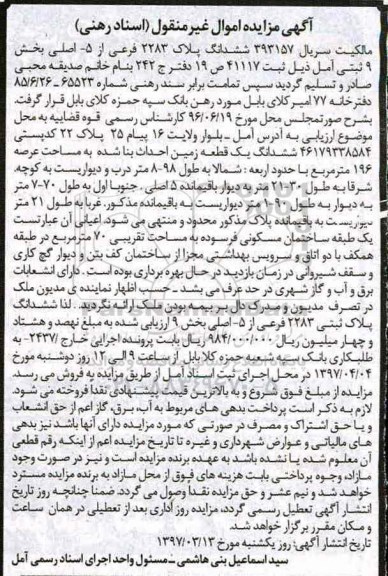 آگهی مزایده اموال غیر منقول (اسناد رهنی)
مالکیت سریال ۳۹۳۱۵۷ ششدانگ پلاک ۲۲۸۳ فرعی از ۵- اصلی بخش
۹ ثبتی آمل ذیل ثبت ۴۱۱۱۷ ص ۱۹ دفتر ج ۲۴۲ بنام خانم صدیقه محبی
صادر و تسلیم گردید سپس تمامت برابر سند رهنی شماره ۶۵۵۲۳ - ۸۵/۶/۲۶
دفترخانه ۷۷ امیرکلای بابل مورد رهن بانک سپه حمزه کلای بابل قرار گرفت.
بشرح صورتمجلس محل مورخ ۹۶/۰۶/۱۹ کارشناس رسمی قوه قضاییه به محل
موضوع ارزیابی به آدرس آمل - بلوار ولایت ۱۶ پیام ۲۵ پلاک ۲۲ کدپستی
۴۶۱۷۹۳۳۸۵۸۴ ششدانگ یک قطعه زمین با احداث بنا شده به مساحت عرصه
۱۹۶ مترمربع با حدود اربعه: شمالا به طول ۹۸-۸ متر درب و دیواریست به کوچه.
شرقا به طول ۳۰-۲۱ متر به دیوار باقیمانده ۵ اصلی. جنوبا اول به طول ۷۰-۷ متر
به دیوار به طول ۹۰-۱ متر دیواریست به باقیمانده مذکور. غربا به طول ۲۱ متر
دیواریست به باقیمانده پلاک مذکور محدود و منتهی می شود. اعیانی آن عبارتست
یک طبقه ساختمان مسکونی فرسوده به مساحت تقریبی ۷۰ مترمربع در طبقه
همکف با دو اتاق و سرویس بهداشتی مجزا از ساختمان کف بتن و دیوار گچ کاری
و سقف شیروانی در زمان بازدید در حال بهره برداری بوده است. دارای انشعابات
برق و آب و گاز شهری در حد عرف می باشد - حسب اظهار نماینده ی مدیون ملک
در تصرف مدیون و مدرک دال بر بیمه بودن ملک ارائه نگردید. لذا ششدانگ
پلاک ثبتی ۲۲۸۳ فرعی از ۵- اصلی بخش ۹ ارزیابی شده به مبلغ نهصد و هشتاد
و چهار میلیون ریال ۹۸۴/۰۰۰/۰۰۰ ریال بابت پرونده اجرایی خارج ۲۴۳۷/- به
طلبکاری بانک سپه شعبه حمزه کلا بابل از ساعت ۹ الی ۱۲ روز دوشنبه مورخ
۱۳۹۷/۰۴/۰۴ در محل اجرای ثبت اسناد آمل از طریق مزایده به فروش می رسد.
مزایده از مبلغ فوق شروع و به بالاترین قیمت پیشنهادی نقدا فروخته می شود.
لازم به ذکر است پرداخت بدهی های مربوط به آب، برق، گاز اعم از حق انشعاب
و یا حق اشتراک و مصرف در صورتی که مورد مزایده دارای آنها باشد نیز بدهی
های مالیاتی و عوارض شهرداری و غیره تا تاریخ مزایده اعم از اینکه رقم قطعی
آن معلوم شده یا نشده باشد به عهده برنده مزایده است و نیز در صورت وجود
مازاد، وجوه پرداختی بابت هزینه های فوق از محل مازاد به برنده مزایده مسترد
خواهد شد و نیم عشر و حق مزایده نقدا وصول می گردد. ضمنا چنانچه روز تاریخ
انتشار آگهی تعطیل رسمی گردد، مزایده روز اداری بعد از تعطیلی در همان ساعت
و مکان مقرر برگزار خواهد شد.
تاریخ انتشار آگهی: روز یکشنبه مورخ ۱۳۹۷/۰۳/۱۳
سید اسماعیل بنی هاشمی - مسئول واحد اجرای اسناد رسمی آمل